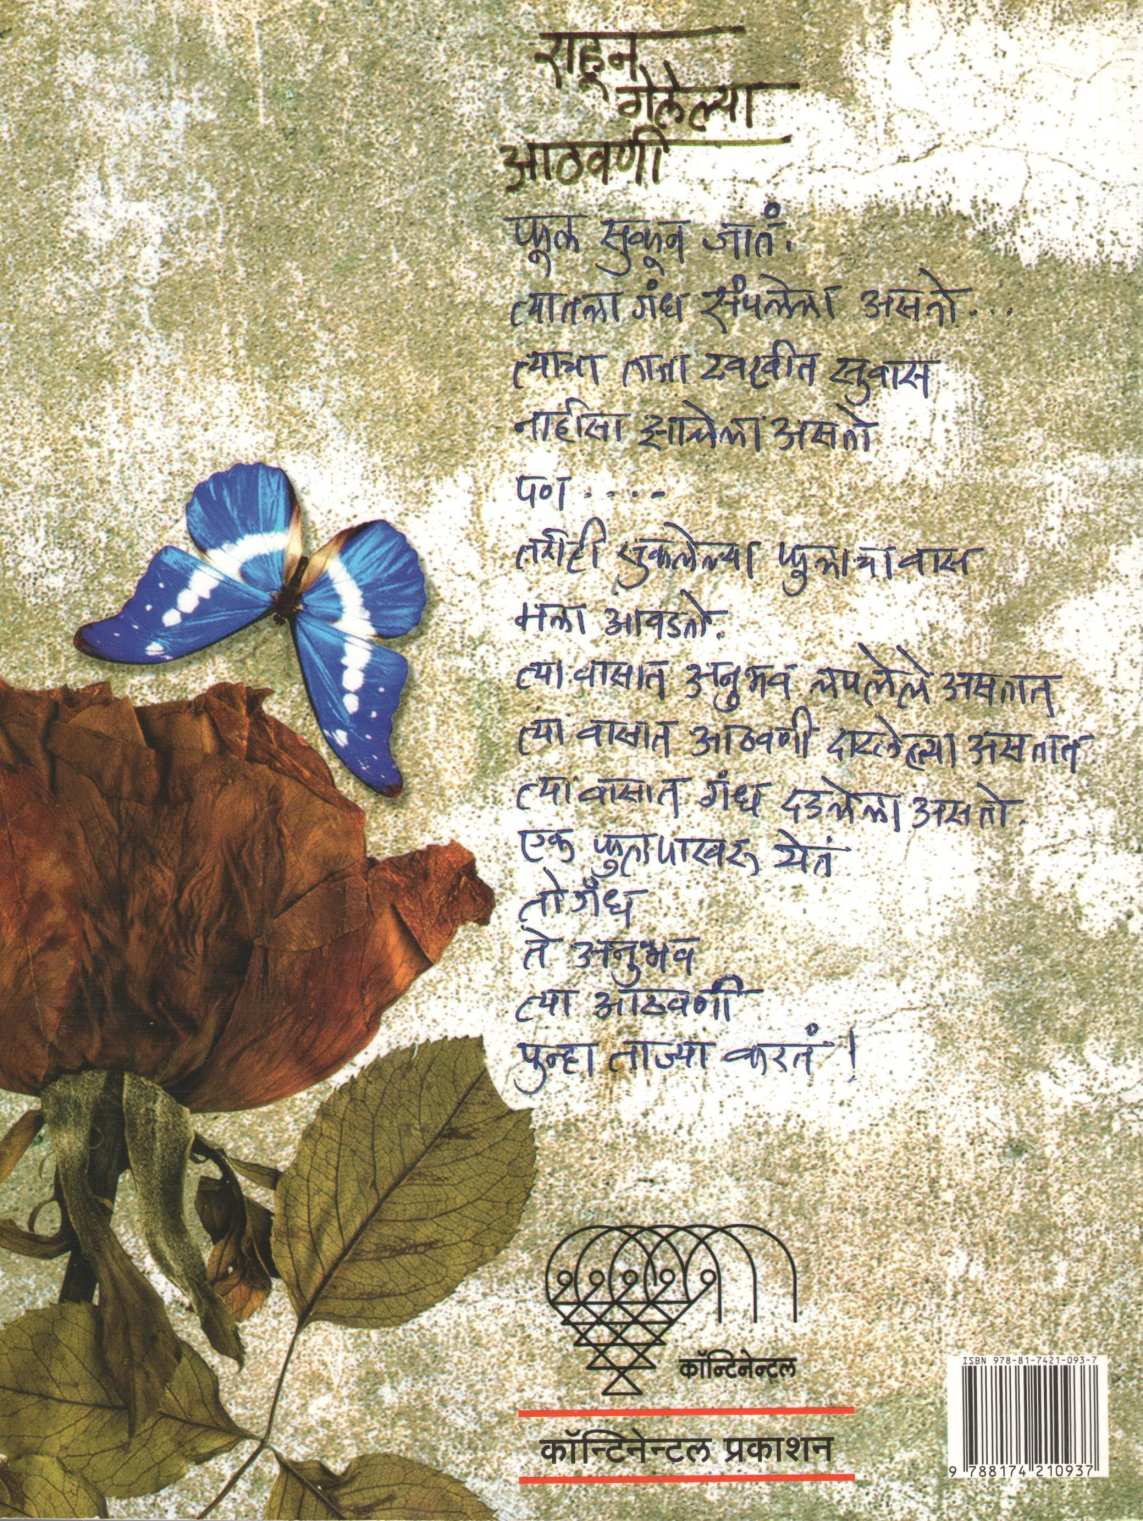 राहून
गेलेल्या
आठवणी
फूल सुकून जातं.
त्यातला गंध संपलेला असतो...
त्याचा ताजा टवटवीत सुवास
नाहीसा झालेला असतो
पण .....
तरीही सुकलेल्या फुलाचा वास
मला आवडतो.
त्या वासात अनुभव लपलेले असतात
त्या वासात आठवणी दाटलेल्या असतात
त्या वासात गंध दडलेला असतो.
एक फुलपाखरू येतं
तो गंध
ते अनुभव
त्या आठवणी
पुन्हा ताज्या करतं !
कॉन्टिनेन्टल
कॉन्टिनेन्टल प्रकाशन
ISBN 978-81-7421-093-7
9 788174 210937